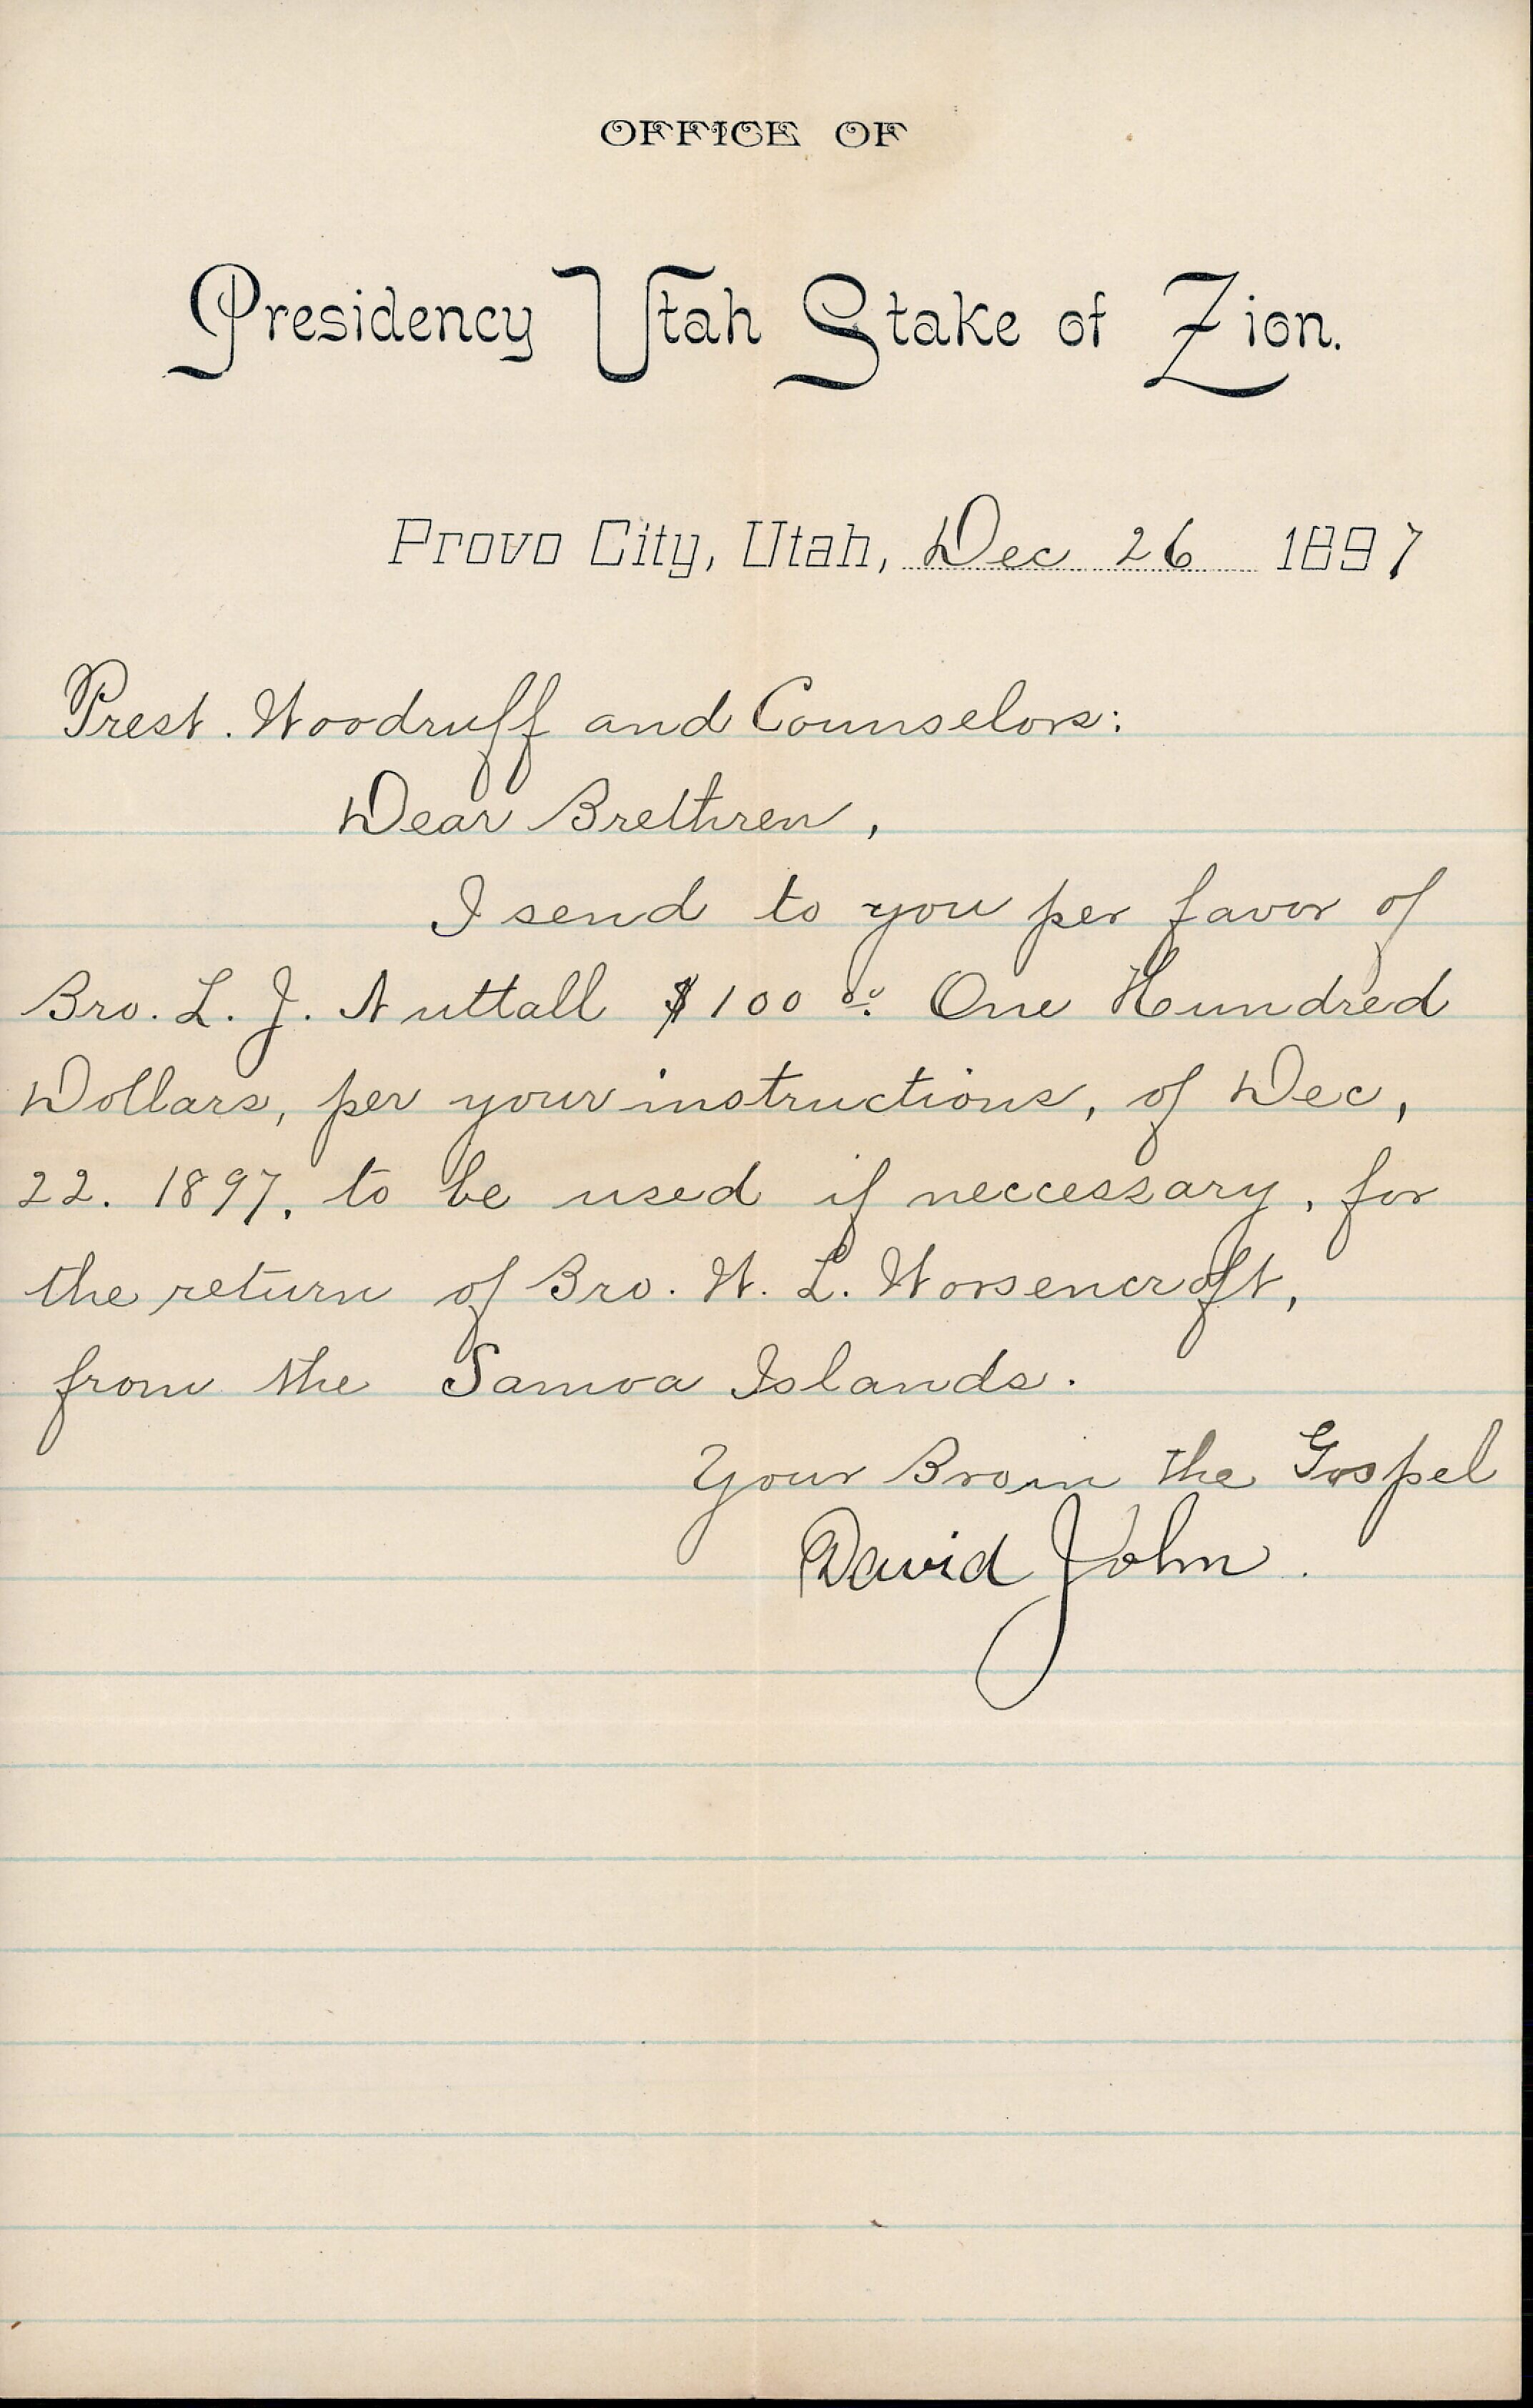 OFFICE OF
Presidency Utah Stake of Zion.
Provo City, Utah, Dec 26 1897
Prest. Woodruff and Counselors:
Dear Brethren,
I send to you per favor of
Bro. L. J. Nuttall $100 00 One Hundred
Dollars, per your instructions, of Dec,
22. 1897, to be used if neccessary, for
the return of Bro. W. L. Worsencroft,
from the Samoa Islands.
Your Bro in the Gospel
David John.